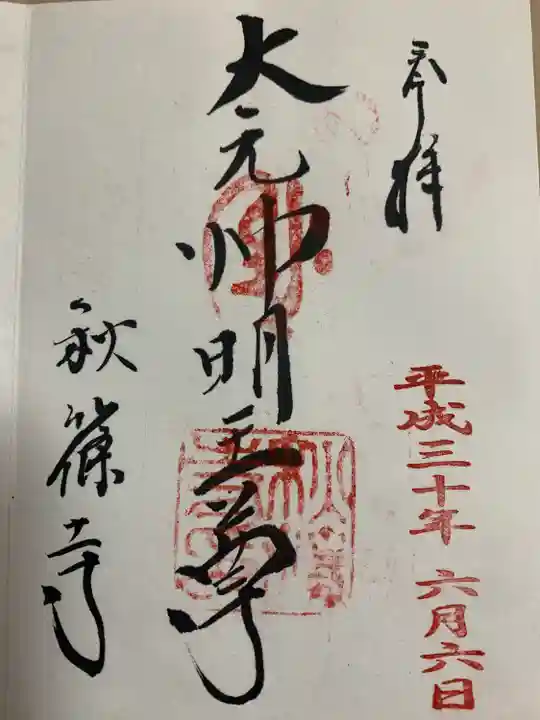 奉拝
平成三十年 六月六日
大元帥明王尊
秋篠寺